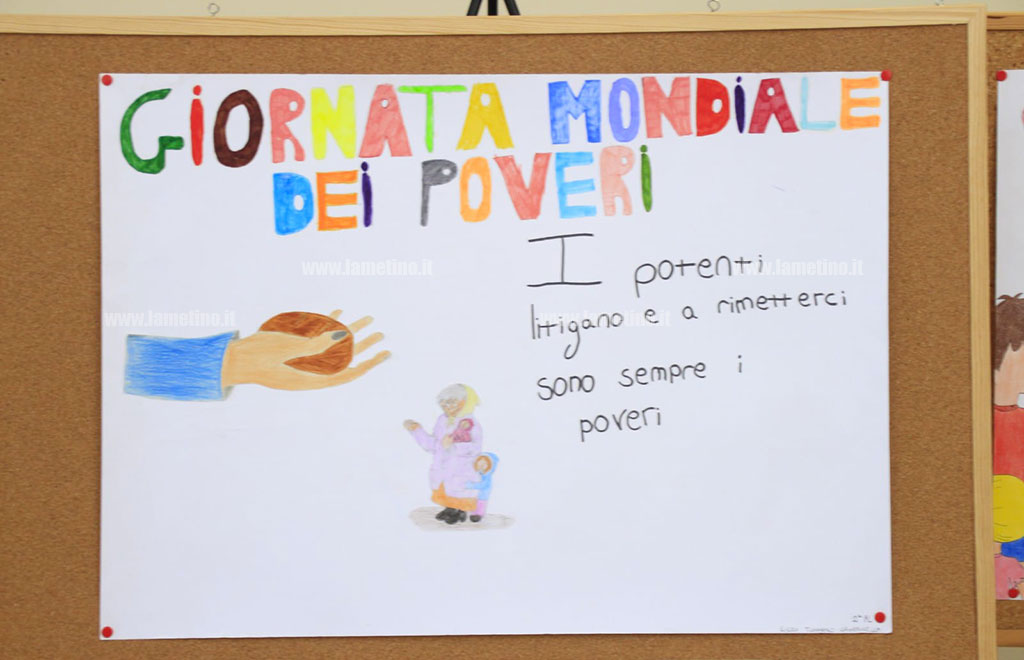 GIORNATA MONDIALE
DEI POVERI
I potenti
litigano e a rimetterci
sono sempre i
poveri
www.lametino.it
www.lametino.it
www.lametino.it
www.lametino.it